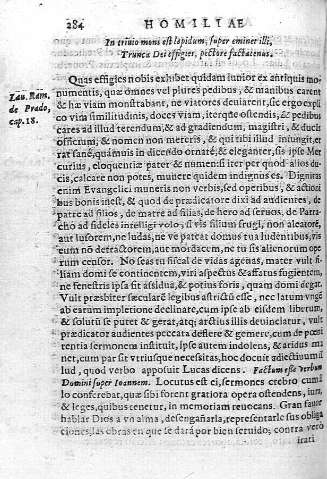 284 HOMILIAE
In trivio mons est lapidum, super eminet illi,
Trunca Dei effigies, pectore facta tenus.
Lau. Ram.
de Prado,
cap. 18.
Quas effigies nobis exhibet quidam iunior ex antiquis mo-
numentis, quæ omnes vel plures pedibus, & manibus carent
& hæ viam monstrabant, ne viatores deviarent, sic ergo expli
co vim similitudinis, doces viam, iterque ostendis, & pedibus
cares ad illud terendum; & ad gradiendum, magistri, & ducis
officium, & nomen non mereris, & qui tibi illud iniungit, er-
rat sanè, quamuis in dicendo ornatè, & eleganter, sis ipse Mer
curius, eloquentiæ pater & numen si iter per quod alios du-
cis, calcare non potes, munere quidem indignus es. Dignitas
enim Evangelici muneris non verbis, sed operibus, & actioni
bus bonis inest, & quod de prædicatore dixi ad audientes, de
patre ad filios, de matre ad filias, de hero ad seruos, de Parro-
cho ad fideles intelligi volo, si vis filium frugi, non aleatorē,
aut lusorem, ne ludas, ne ve pateat domus tua ludentibus, vis
eum nō detractorem, aut mordacem, ne tu sis alienorum ope
rum censor. No seas tu fiscal de vidas agenas, mater vult fi-
liam domi se continentem, viri aspectus & affatus fugientem,
ne fenestris ipsa sit assidua, & potius foris, quam domi degat.
Vult præsbiter sæcularē legibus astrictū esse, nec latum vngē
ab earum impletione declinare, cum ipse ab eisdem liberum,
& solutū se putet & gerat, atq; arctius illis deuinciatur, vult
prædicator audientes peccata deflere & gemere, cum de pœni
tentia sermonem instituit, ipse autem indolens, & aridus ma
net, cum par sit vtriusque necessitas, hoc docuit adiectiuum il
lud, quod verbo apposuit Lucas dicens. Factum est verbum
Domini super Ioannem. Locutus est ei, sermones crebro cum il
lo conferebat, quæ sibi forent gratiora opera ostendens, iura,
& leges, quibus tenetur, in memoriam reuocans. Gran fauor
hablar Dios a vn alma, desengañarla, representarle sus obliga
ciones, las obras en que se dará por bien seruido; contra verò
irati